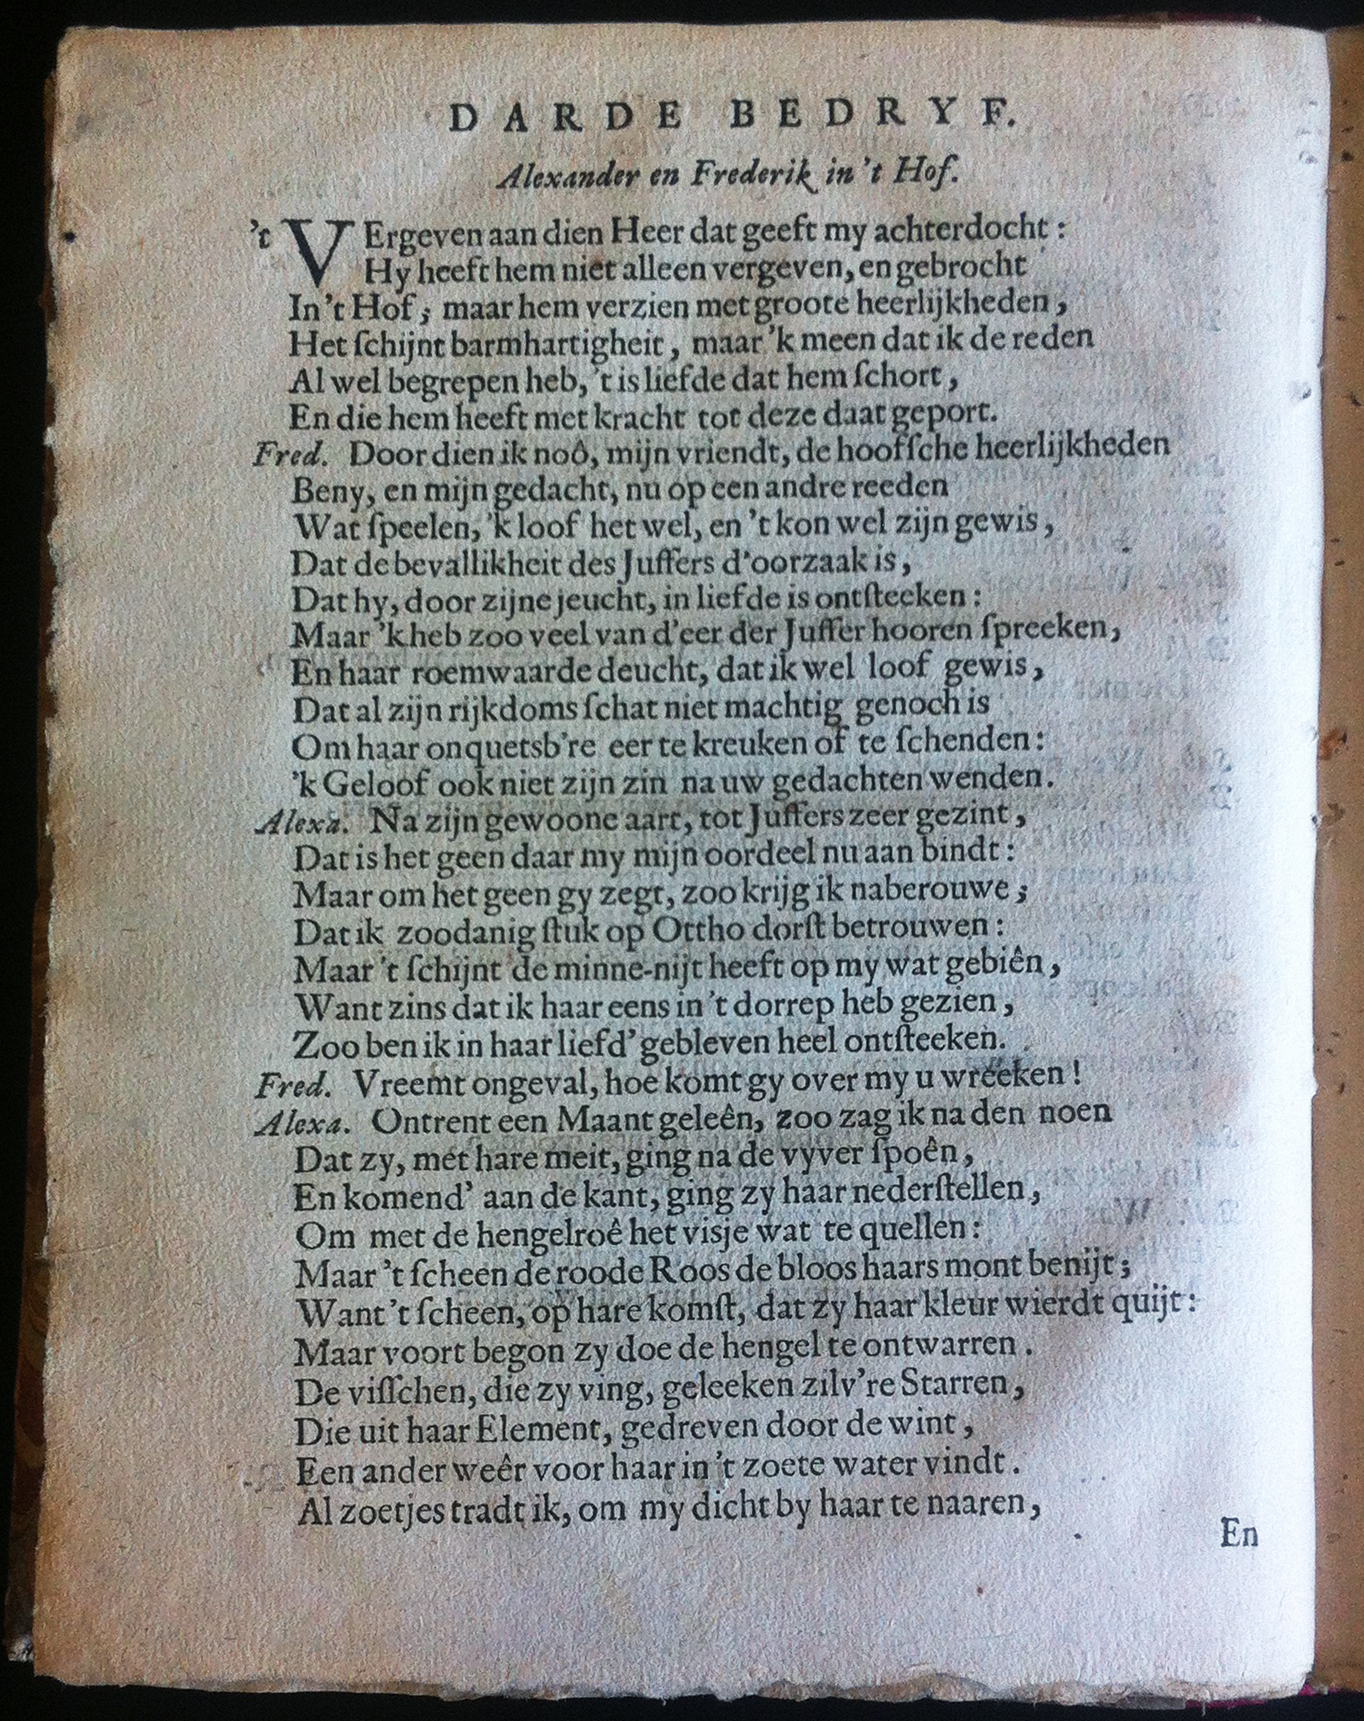 DARDE BEDRYF.
Alexander en Frederik in 't Hof.
't VErgeven aan dien Heer dat geeft my achterdocht:
Hy heeft hem niet alleen vergeven, en gebrocht
In 't Hof; maar hem verzien met groote heerlijkheden,
Het ſchijnt barmhartigheit, maar 'k meen dat ik de reden
Al wel begrepen heb, 't is liefde dat hem ſchort,
En die hem heeft met kracht tot deze daat geport.
Fred. Door dien ik noô, mijn vriendt, de hoofſche heerlijkheden
Beny, en mijn gedacht, nu op een andre reeden
Wat ſpeelen, 'k loof het wel, en 't kon wel zijn gewis,
Dat de bevallikheit des Juffers d'oorzaak is,
Dat hy, door zijne jeucht, in liefde is ontſteeken:
Maar 'k heb zoo veel van d'eer der Juffer hooren ſpreeken,
En haar roemwaarde deucht, dat ik wel loof gewis,
Dat al zijn rijkdoms ſchat niet machtig genoch is
Om haar onquetsb're eer te kreuken of te ſchenden:
'k Geloof ook niet zijn zin na uw gedachten wenden.
Alexa. Na zijn gewoone aart, tot Juffers zeer gezint,
Dat is het geen daar my mijn oordeel nu aan bindt:
Maar om het geen gy zegt, zoo krijg ik naberouwe;
Dat ik zoodanig ſtuk op Ottho dorſt betrouwen:
Maar 't ſchijnt de minne-nijt heeft op my wat gebiên,
Want zins dat ik haar eens in 't dorrep heb gezien,
Zoo ben ik in haar liefd' gebleven heel ontſteeken.
Fred. Vreemt ongeval, hoe komt gy over my u wreeken!
Alexa. Ontrent een Maant geleên, zoo zag ik na den noen
Dat zy, met hare meit, ging na de vyver ſpoên,
En komend' aan de kant, ging zy haar nederſtellen,
Om met de hengelroê het visje wat te quellen:
Maar 't ſcheen de roode Roos de bloos haars mont benijt;
Want 't ſcheen, op hare komſt, dat zy haar kleur wierdt quijt:
Maar voort begon zy doe de hengel te ontwarren.
De viſſchen, die zy ving, geleeken zilv're Starren,
Die uit haar Element, gedreven door de wint,
Een ander weêr voor haar in 't zoete water vindt.
Al zoetjes tradt ik, om my dicht by haar te naaren,
En